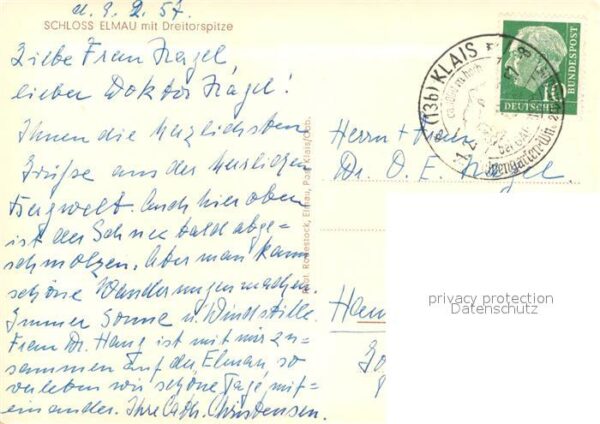 d. 9. 2. 57.
SCHLOSS ELMAU mit Dreitorspitze
Liebe Frau Nagel
lieber Doktor Nagel!
Ihnen die herzlichsten
Grüße aus der herrlichen
Bergwelt. Auch hier oben
ist der Schnee bald abge=
schmolzen. Aber man kann
schöne Wanderungen machen.
Immer Sonne u. Windstille.
Frau Dr. Haug ist mit mir zu=
sammen auf der Elmau, so
verleben wir schöne Tage mit=
einander. Ihre Cath. Christensen.
Rodestock, Elmau, Post Klais/Obb.
(13b) KLAIS
10
DEUTSCHE
BUNDESPOST
Herrn + Frau
Dr. O. E. Nagel.
privacy protection
Datenschutz